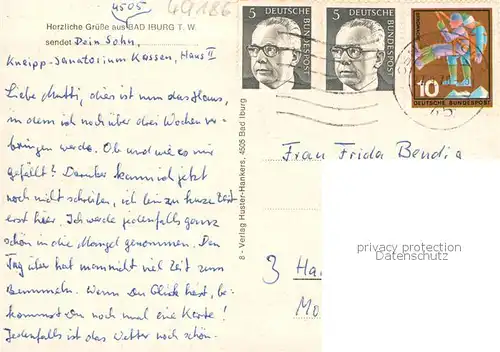 4505
49186
Herzliche Grüße aus BAD IBURG T. W.
sendet Dein Sohn,
Kneipp-Sanatorium Kassen, Haus II
Liebe Mutti, dies ist nun das Haus,
in dem ich noch über drei Wochen ver-
bringen werde. Ob und wie es mir
gefällt? Darüber kann ich jetzt
noch nicht schreiben, ich bin zu kurze Zeit
erst hier. Ich werde jedenfalls ganz
schön in die Mangel genommen. Den
Tag über hat man nicht viel Zeit zum
Bummeln. Wenn Du Glück hast, be-
kommst Du noch mal eine Karte!
Jedenfalls ist das Wetter noch schön.
8 - Verlag Huster-Hankers, 4505 Bad Iburg
5
DEUTSCHE BUNDESPOST
5
DEUTSCHE BUNDESPOST
10
DEUTSCHE BUNDESPOST
Frau Frida Bendig
3 Ha
Mo
privacy protection
Datenschutz